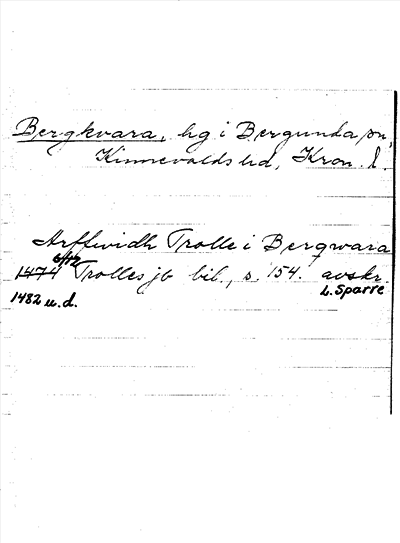 Bergkvara, hg i Bergunda sn,
Kinnevalds hd, Kron. l.
Arffwidh Trolle i Bergwara
6/12
1474 Trolles jb bil., s. 154. avskr.
L. Sparre
1482 u.d.